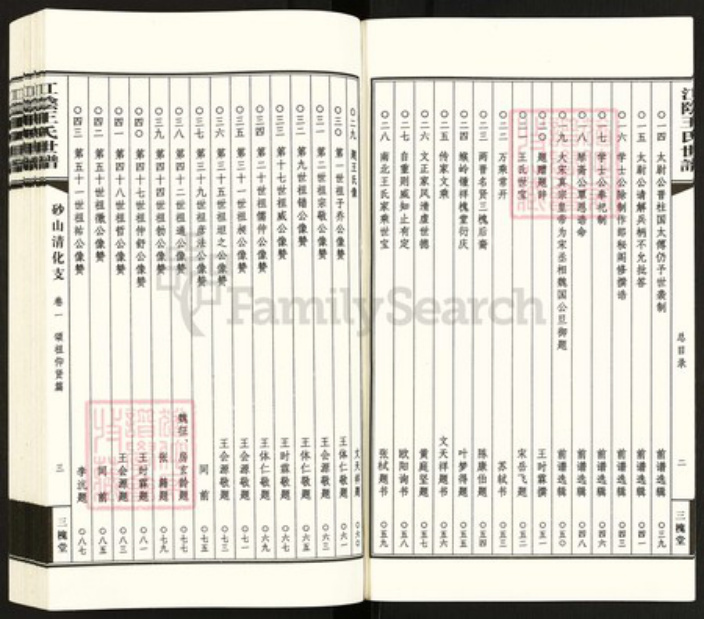 江阴王氏世谱
总目录
二
三槐堂
〇一四 太尉公晋柱国太傅仍予世袭制 前谱选辑 〇三九
〇一五 太尉公请解兵柄不允批答 前谱选辑 〇四一
〇一六 学士公除制作郎秘阁修撰诰 前谱选辑 〇四三
〇一七 学士公奉祀制 前谱选辑 〇四六
〇一八 琴斋公覃恩诰命 前谱选辑 〇四八
〇一九 大宋真宗皇帝为宋丞相魏国公旦御题 前谱选辑 〇五〇
〇二〇 题赠题辞 王时霖撰 〇五一
〇二一 王氏世宝 宋岳飞题 〇五二
〇二二 万乘常开 苏轼书 〇五三
〇二三 两晋名贤三槐后裔 陈康伯题 〇五四
〇二四 缑岭锺祥槐堂衍庆 叶梦得题 〇五五
〇二五 传家文乘 文天祥题书 〇五六
〇二六 文正家风清虚世德 黄庭坚题 〇五七
〇二七 自重则威知止有定 欧阳询书 〇五八
〇二八 南北王氏家乘世宝 张栻题书 〇五九
〇二九 题王氏像 文天祥题 〇六〇
〇三〇 第一世祖子乔公像赞 王体仁敬题 〇六一
〇三一 第二世祖宗敬公像赞 王会源敬题 〇六三
〇三二 第九世祖错公像赞 王体仁敬题 〇六五
〇三三 第十七世祖威公像赞 王时霖敬题 〇六七
〇三四 第二十世祖儒仲公像赞 王体仁敬题 〇六九
〇三五 第三十一世祖昶公像赞 王会源敬题 〇七一
〇三六 第三十五世祖坦之公像赞 王会源敬题 〇七三
〇三七 第三十九世祖彦法公像赞 同前 〇七五
〇三八 第四十二世祖通公像赞 魏征 房玄龄题 〇七七
〇三九 第四十四世祖勃公像赞 张 题 〇七九
〇四〇 第四十七世祖仲舒公像赞 王时霖题 〇八一
〇四一 第四十八世祖哲公像赞 王会源题 〇八三
〇四二 第五十世祖徽公像赞 同前 〇八五
〇四三 第五十一世祖祐公像赞 李沆题 〇八七
江阴王氏世谱
砂山清化支 卷一 颂祖仰贤篇
三
三槐堂
FamilySearch